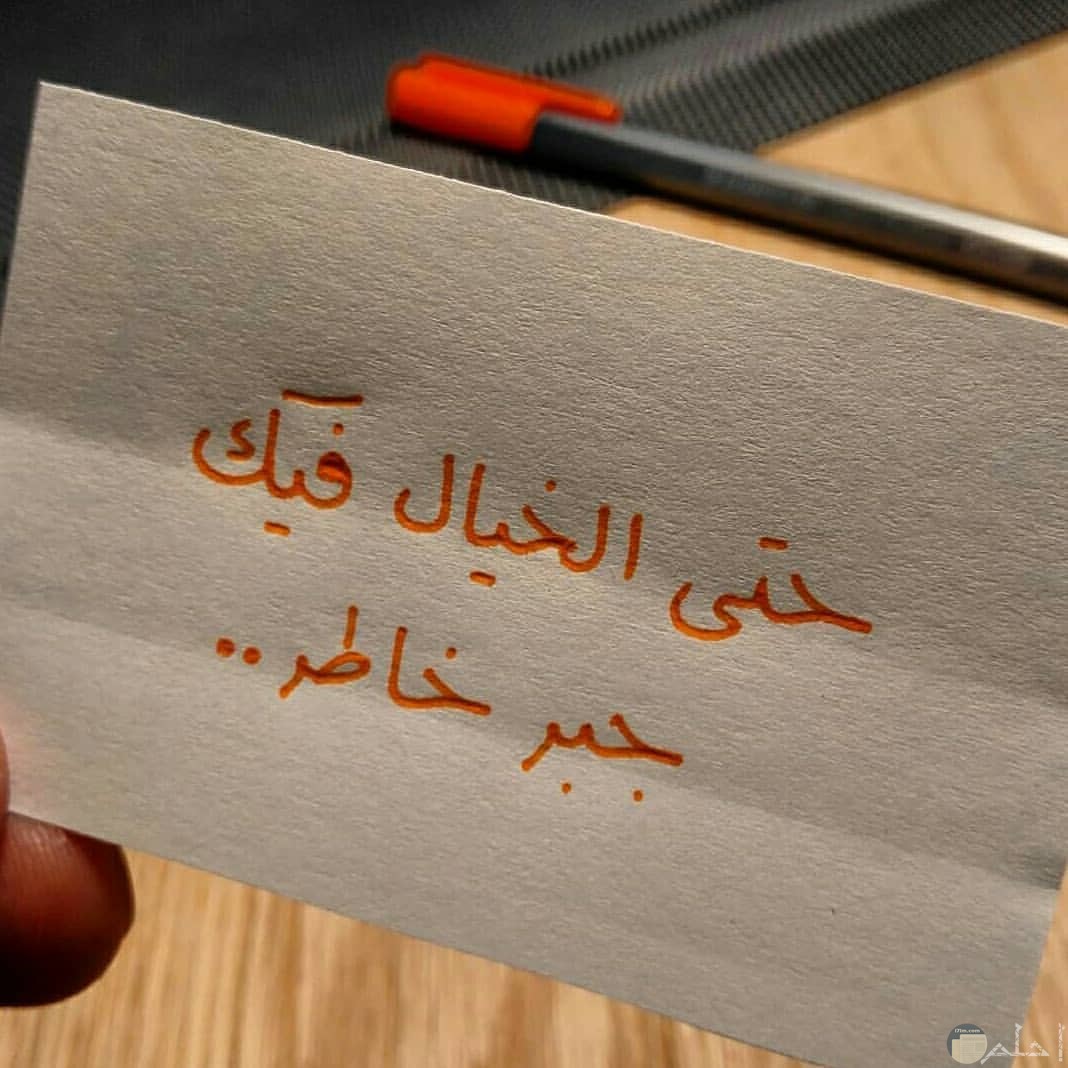 حتى الخيال فيك
جبر خاطر..
احلم